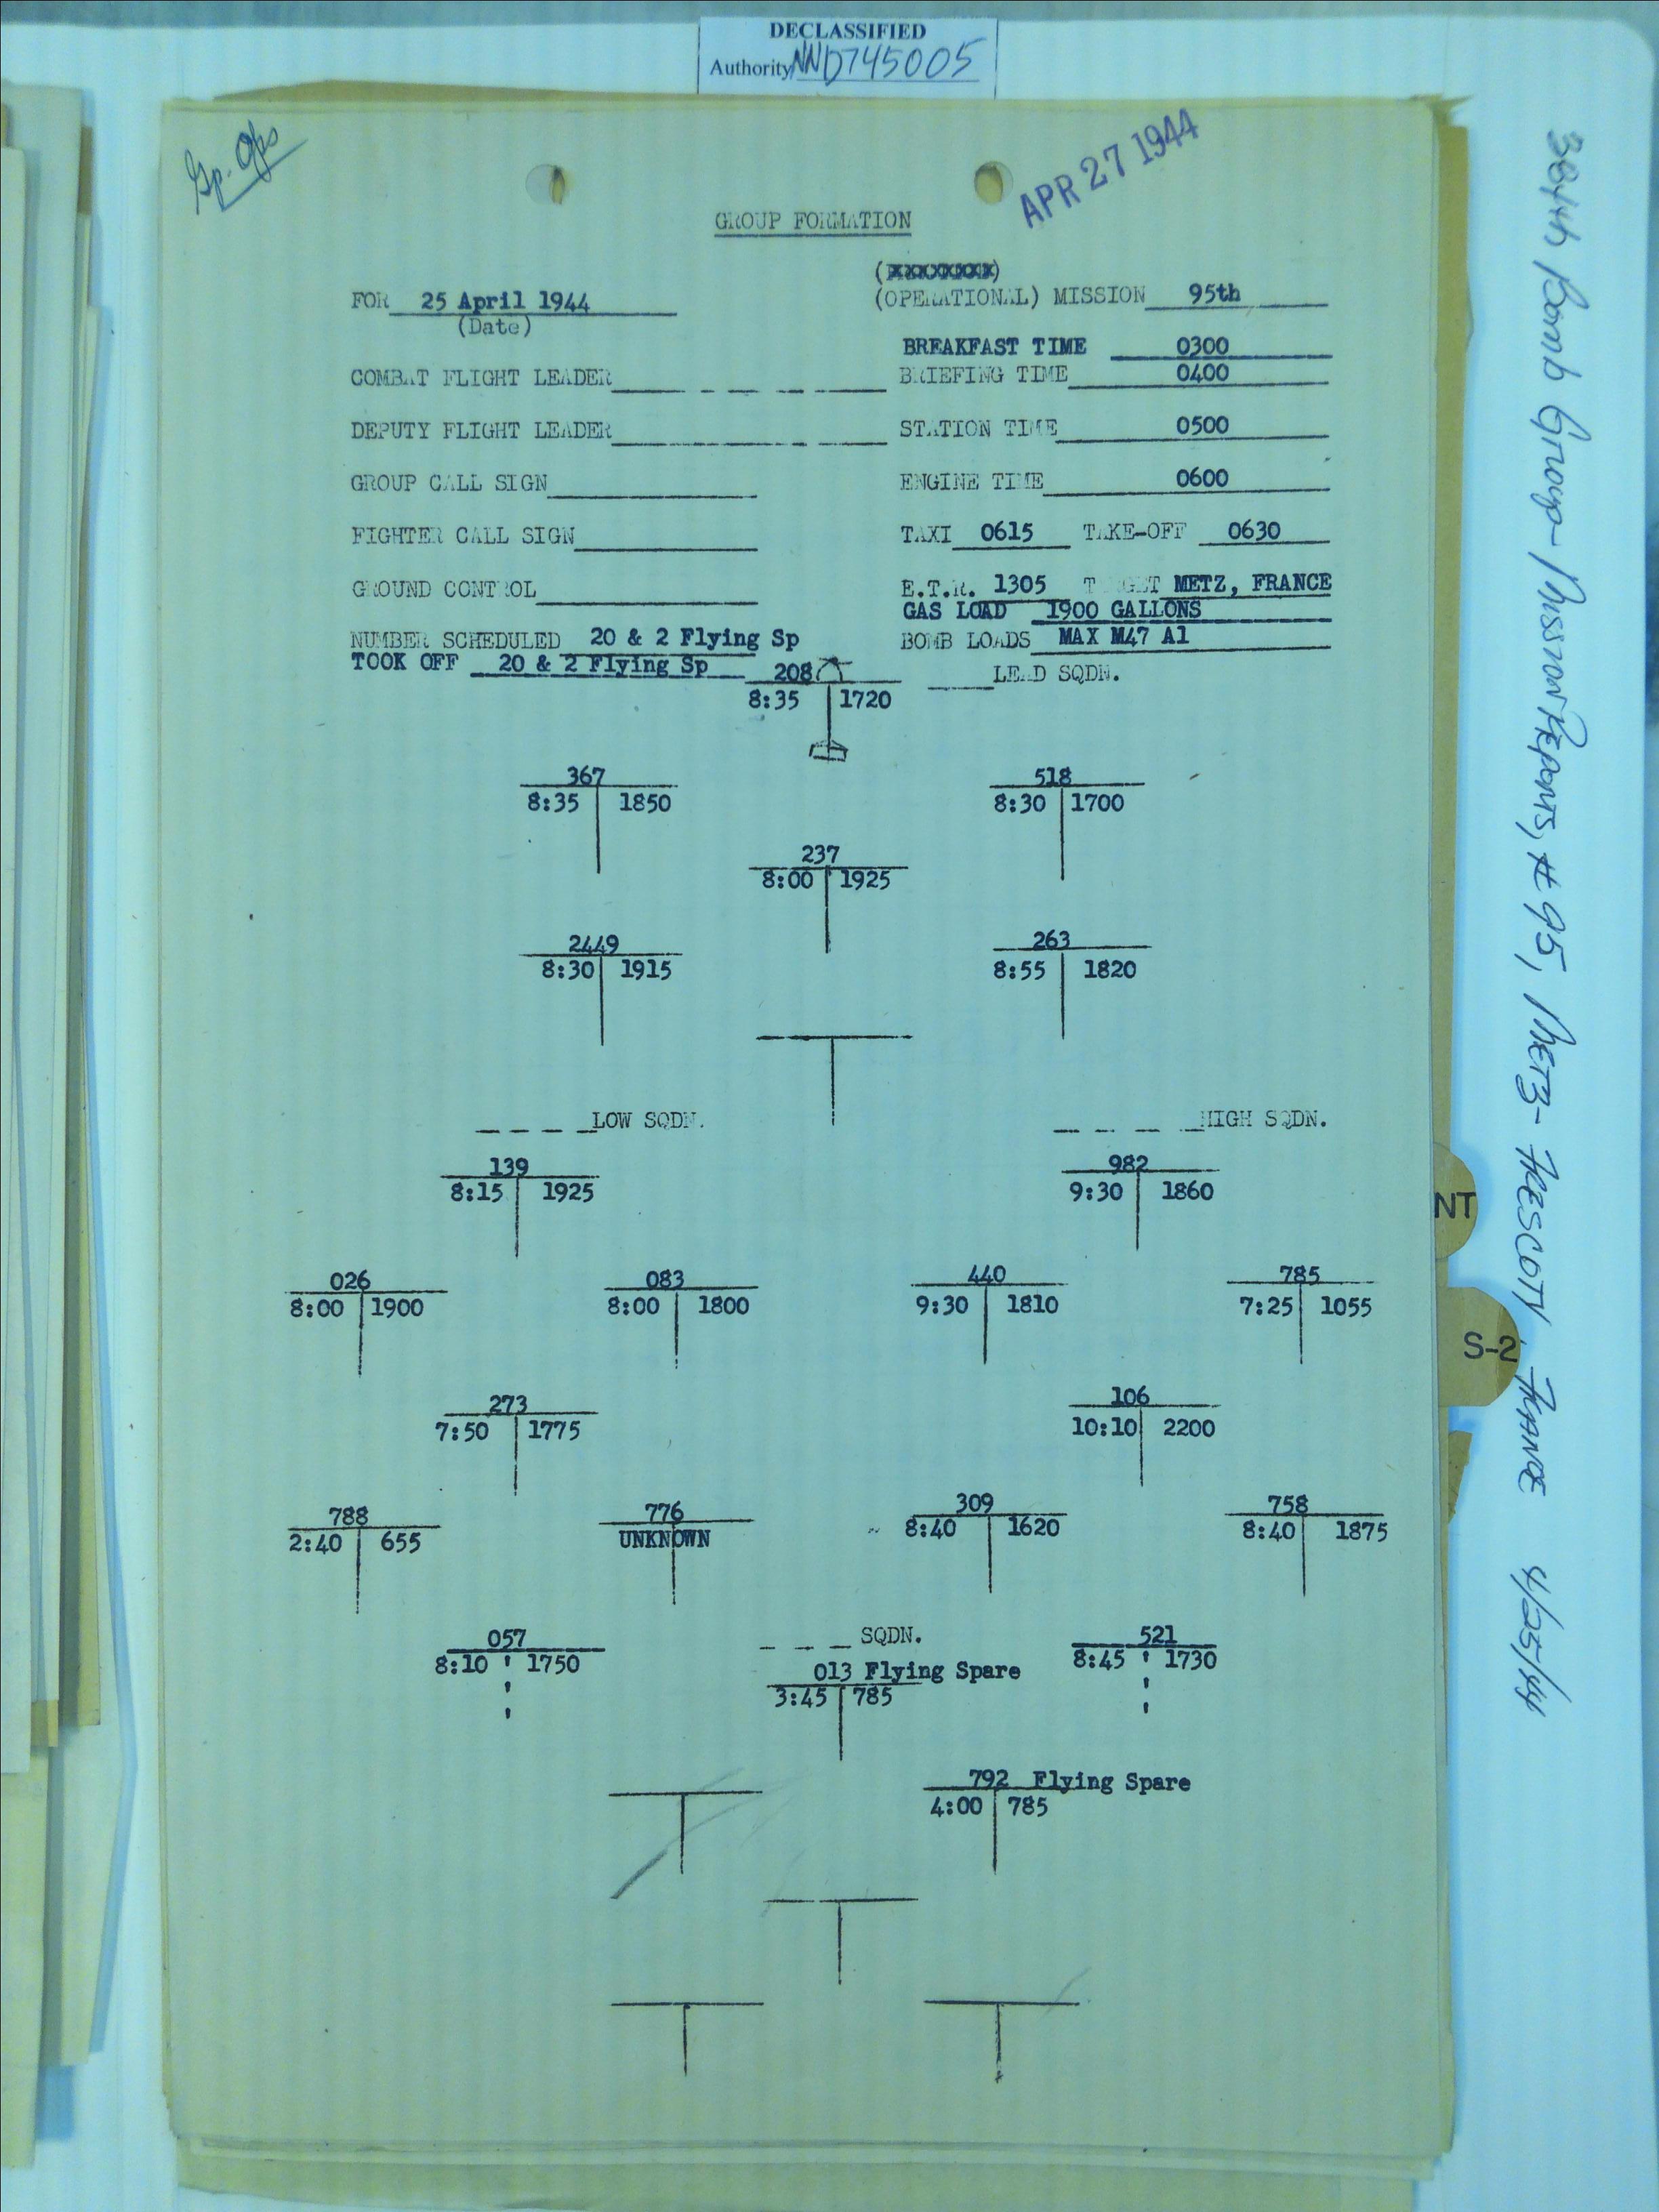 DECLASSIFIED
Authority NND745005
Gp. Ops
APR 27 1944
GROUP FORMATION
(XXXXXXXX)
FOR 25 April 1944 (OPERATIONAL) MISSION 95th
(Date)
BREAKFAST TIME 0300
COMBAT FLIGHT LEADER BRIEFING TIME 0400
DEPUTY FLIGHT LEADER STATION TIME 0500
GROUP CALL SIGN ENGINE TIME 0600
FIGHTER CALL SIGN TAXI 0615 TAKE-OFF 0630
GROUND CONTROL E.T.R. 1305 TARGET METZ, FRANCE
GAS LOAD 1900 GALLONS
NUMBER SCHEDULED 20 & 2 Flying Sp BOMB LOADS MAX M47 A1
TOOK OFF 20 & 2 Flying Sp
208 LEAD SQDN.
8:35 1720
367 518
8:35 1850 8:30 1700
237
8:00 1925
2449 263
8:30 1915 8:55 1820
LOW SQDN. HIGH SQDN.
139 982
8:15 1925 9:30 1860
026 083 440 785
8:00 1900 8:00 1800 9:30 1810 7:25 1055
273 106
7:50 1775 10:10 2200
788 776 309 758
2:40 655 UNKNOWN 8:40 1620 8:40 1875
057 SQDN. 521
8:10 1750 8:45 1730
013 Flying Spare
3:45 785
792 Flying Spare
4:00 785
NT
S-2
384th Bomb Group - Mission Reports, #95, Metz - Frescoty, France 4/25/44